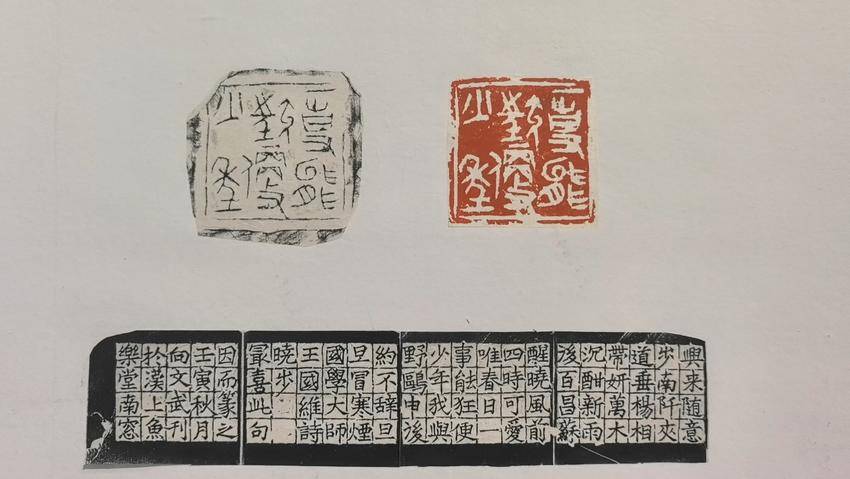 一事能
狂便
少年
一事能
狂便
少年
興來随意
步南阡夾
道垂楊相
帶妍萬木
沉酣新雨
後百昌蘇
醒曉風前
四時可愛
唯春日一
事能狂便
少年我與
野鷗申後
約不辞旦
旦冒寒煙
國學大師
王國維詩
曉步
冣喜此句
因而篆之
壬寅秋月
向文武刊
於漢上魚
樂堂南窓